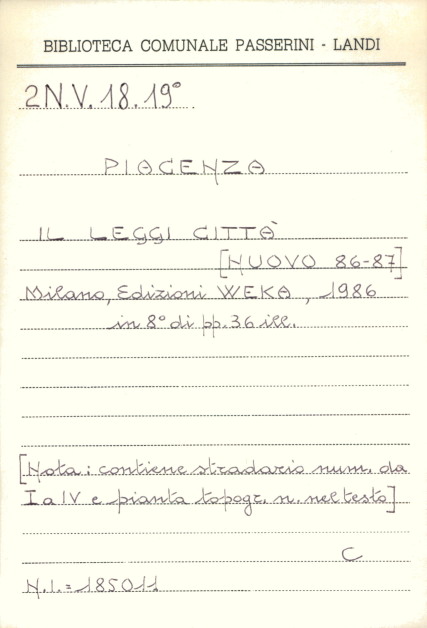 BIBLIOTECA COMUNALE PASSERINI - LANDI
2N.V.18.19°
PIACENZA
IL LEGGI CITTÀ
[NUOVO 86-87]
Milano, Edizioni WEKA, 1986
in 8° di pp. 36 ill.
[Nota: contiene stradario num. da
I a IV e pianta topogr. n. nel testo]
C
N.I.=185011